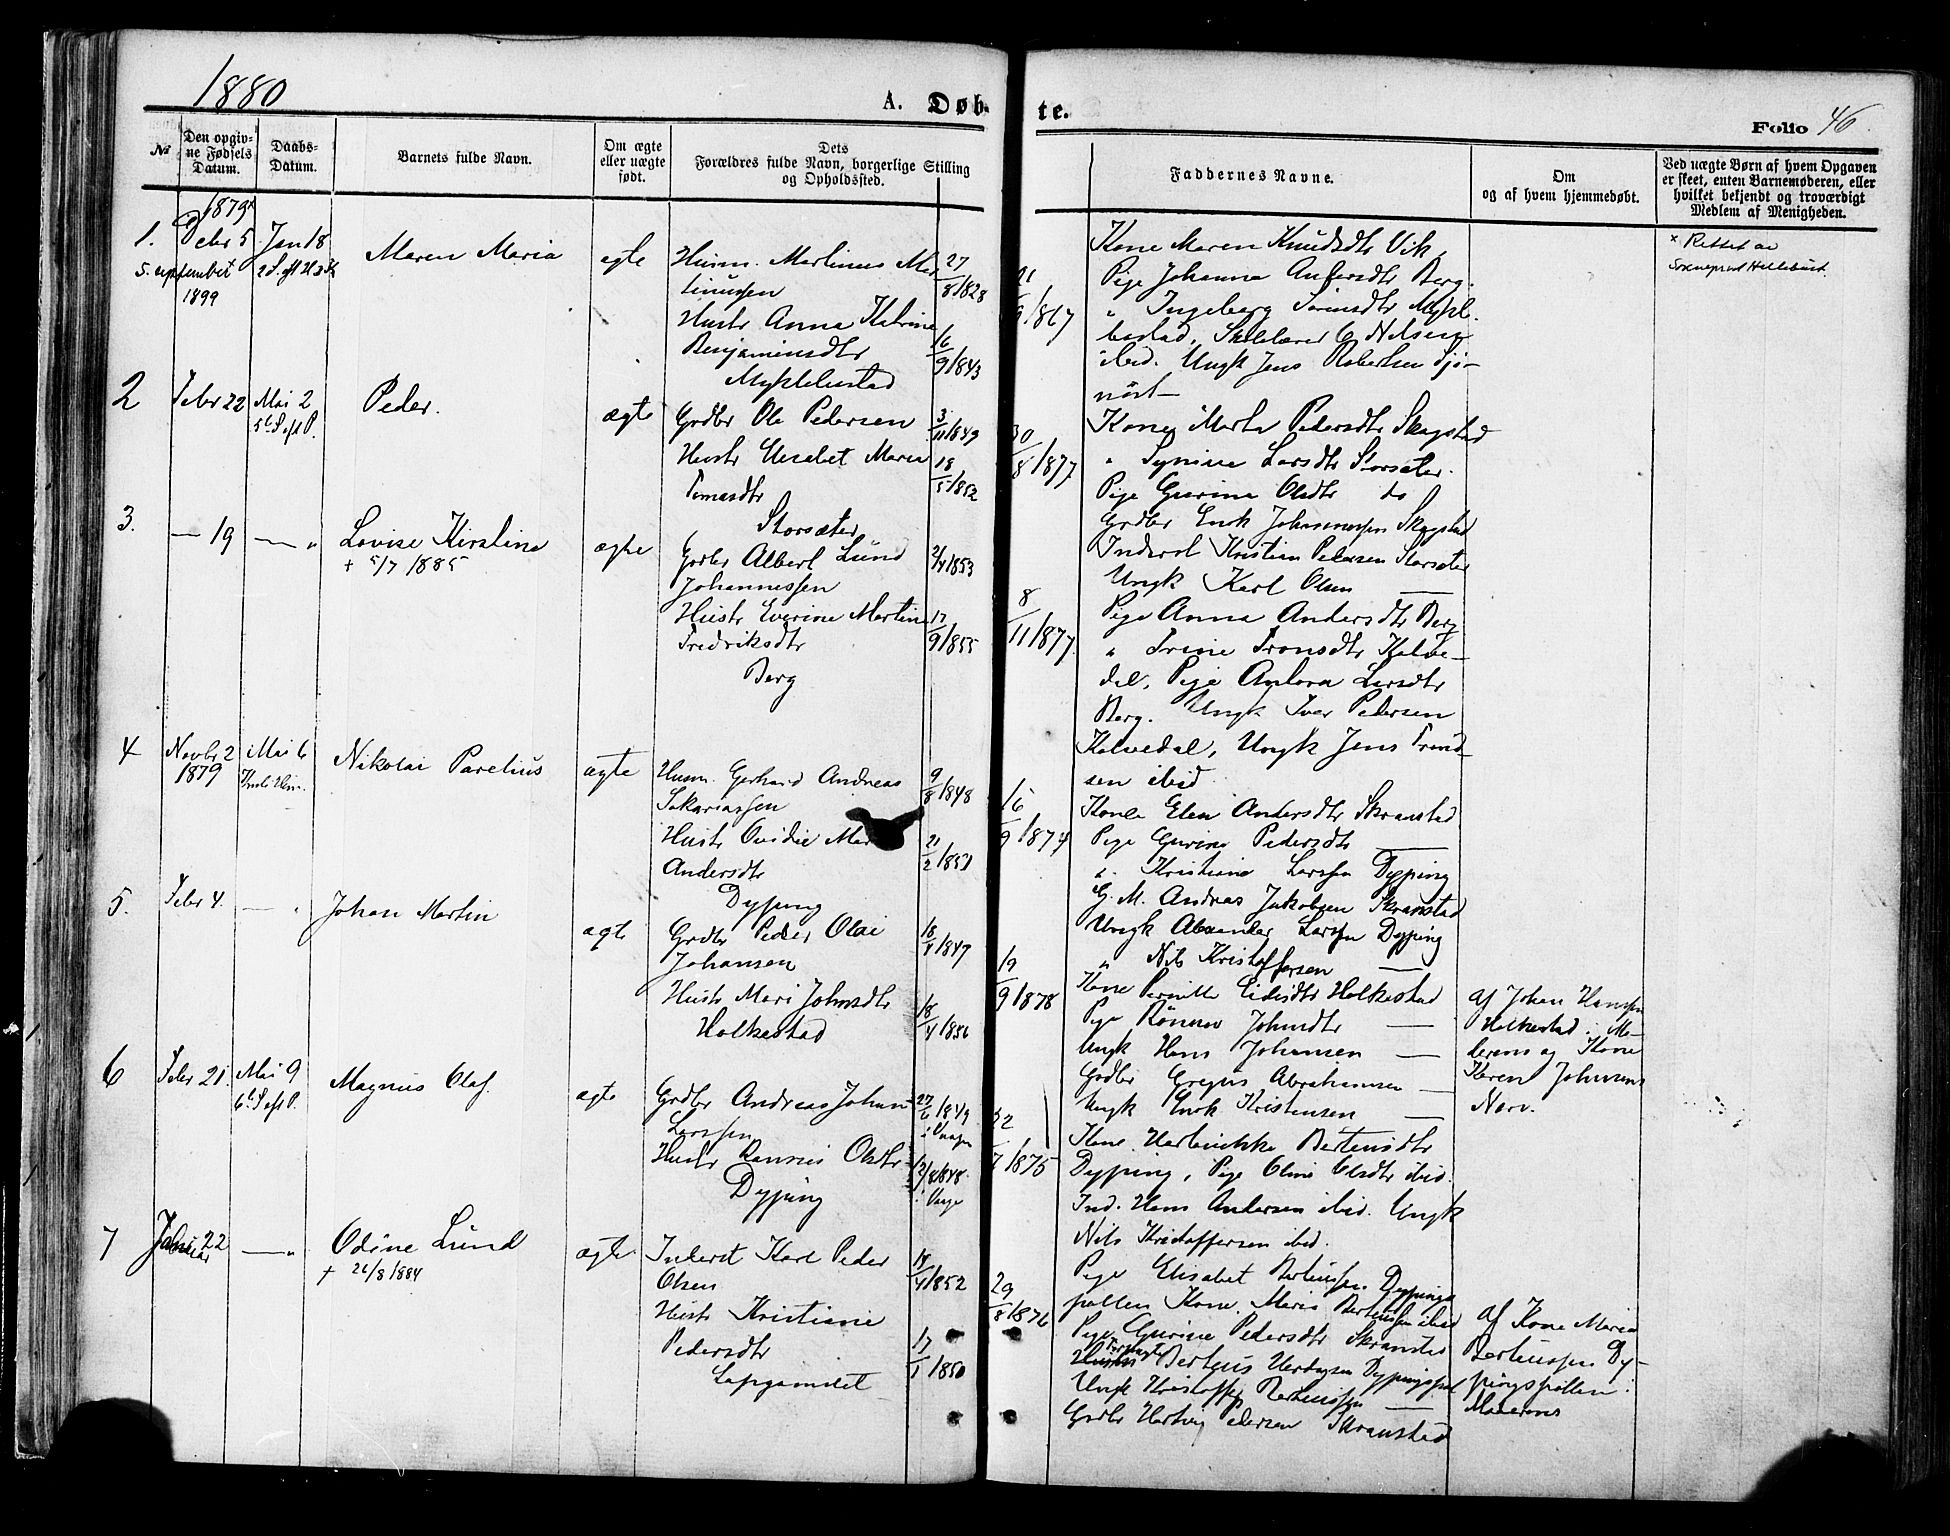 1880
A. Døb-
te.
Folio 46.
№
Den opgiv-
ne Fødsels
Datum.
Daabs-
Datum.
Barnets fulde Navn.
Om ægte
eller uægte
født.
Dets
Forældres fulde Navn, borgerlige Stilling
og Opholdssted.
Faddernes Navne.
Om
og af hvem hjemmedøbt.
Ved uægte Børn af hvem Opgaven
er skeet, enten Barnemoderen, eller
hvilket bekjendt og troværdigt
Medlem af Menigheden.
1879
1.
Debr 5
5. september
1899
Jan 18
2 S. eft H 3 K
Maren Maria
ægte
Husm. Martinus Mar
tinussen
27/8/1828
Hustr Anna Katrine
Benjaminsdtr
16/9/1843
Myklebustad
21/9/1867
Kone Maren Knudsdtr Vik,
Pige Johanna Andersdtr Berg.
" Ingeborg Sørensdtr Mykl.
bostad, Skolelærer C Nilsen
ibid. Ungk Jens Robertsen Fjø-
nört
x Rettet av
Sogneprest Hellebust.
2
Febr 22
Mai 2
5te S. eft P.
Peder.
ægte
Grdbr Ole Pedersen
3/11/1849
Hustr Elisabet Maria
Tomasdtr
18/5/1852
Storsæter
30/8/1877
Kone Marta Pedersdtr Skagstad
" Synine Larsdtr Storsæter.
Pige Gurina Olsdtr do
Grdbr Enok Johannessen Skagstad
Inderst Kristian Pedersen Storsæter
Ungk Karl Olsen —
3.
— 19
— "
Lovise Kirstine
+ 5/7 1885
ægte
Grdbr Albert Lund
Johannessen
2/4/1853
Hustr Everine Martine
Fredriksdtr
17/9/1855
Berg
8/11/1877
Pige Anna Andersdtr Berg
" Trine Tronsdtr Kalve-
dal, Pige Antora Larsdtr
Berg. Ungk Iver Pedersen
Kalvedal, Ungk Jens Trond-
sen ibid
4
Novbr 2
1879
Mai 6
Kristi Him.
Nikolai Parelius
ægte
Husm. Gerhard Andreas
Sakariassen
9/8/1848
Hustr Ovidie Mar
Andersdtr
21/2/1851
Dyping
16/9/1874
Kone Elen Andersdtr Skranstad
Pige Gurine Pedersdtr —
" Kristiane Larssen Dyping
G. M. Andreas Jakobsen Skranstad
Ungk Alexander Larssen Dyping
" Nils Kristoffersen —
5.
Febr 4.
— "
Johan Martin
ægte
Grdbr Peder Olai
Johansen
18/4/1847
Hustr Mari Johnsdtr
Holkestad
18/4/1856
19/9/1878
Kone Pernille Eidisdtr Holkestad
Pige Rønnov Johnsdtr —
Ungk Hans Johansen —
Grdbr Gregus Abrahamsen —
Ungk Enok Kristensen —
af Johan Hanssen
Holkestad i Mo-
derens og Kone
Karen Johnsens
Nærv.
6
Febr 21.
Mai 9
6te S eft P.
Magnus Olaf.
ægte
Grdbr Andreas Johan
Larssen
27/6/1849
Hustr Rannvei Olsdtr
Dyping
22/7/1875
Kone Hartvikke Bertensdtr
Dyping, Pige Oline Olsdtr ibid.
Ind. Hans Andersen ibid. Ungk
Nils Kristoffersen ibid.
7
Januar 22
— "
Odine Lund
+ 26/8/1884
ægte
Inderst Karl Peder
Olsen
18/4/1852
Hustr Kristiane
Pedersdtr
17/1/1850
29/8/1876
Pige Elisabet Berteussen Dypings
pollen Kone Maria Berteussen ibid
Pige Gurine Pedersdtr Skranstad
Berteus Dypingspol
Ungk Kristoffer Berteussen —
Grdbr Hartvig Pedersen Skranstad
af Kone Maria
Berteussen Dy-
pingspollen i
Moderens